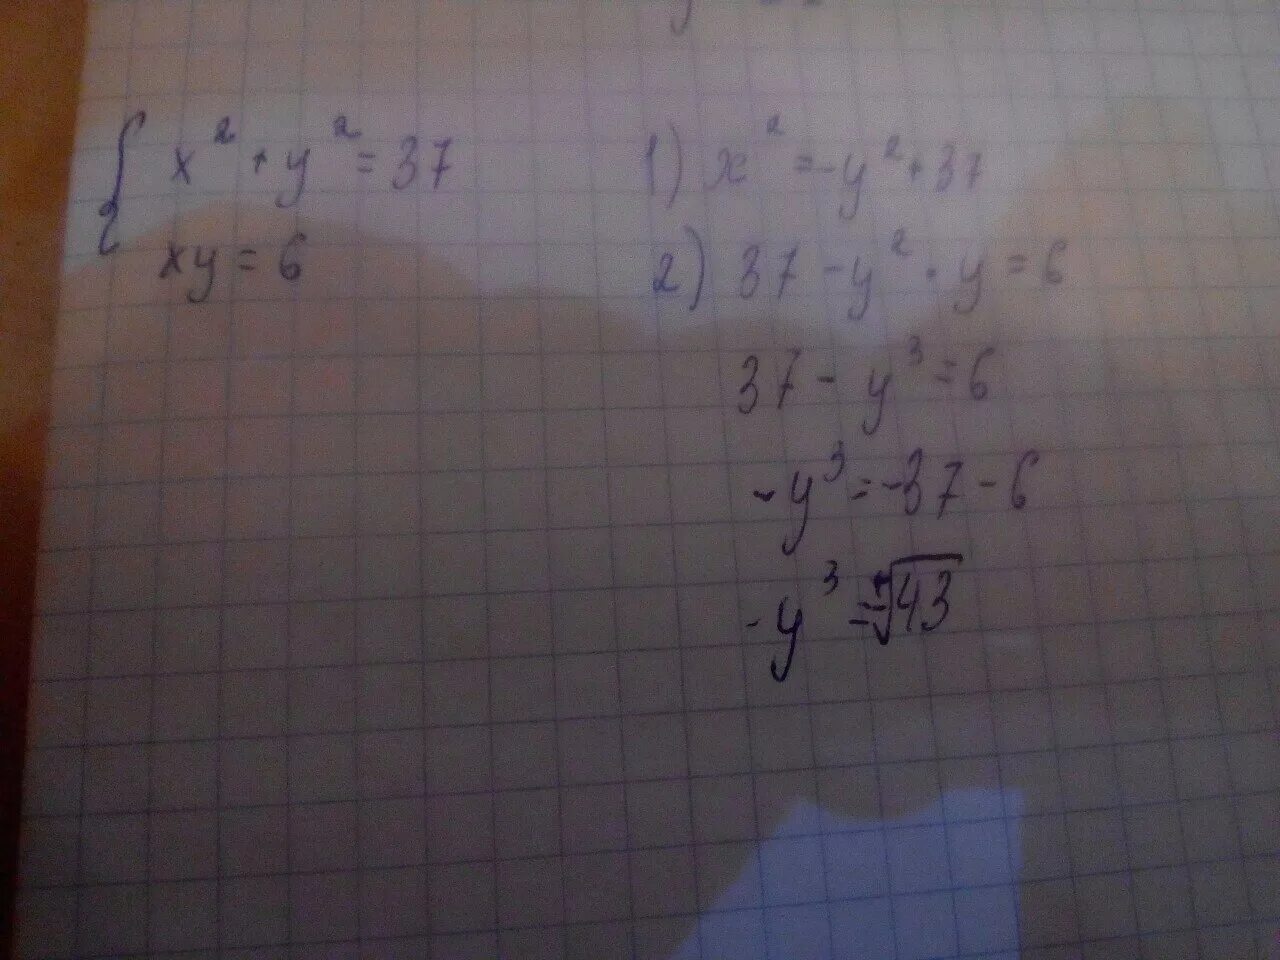 x² + y² = 37
xy = 6
1) x² = -y² + 37
2) 37 - y² · y = 6
37 - y³ = 6
-y³ = -37 - 6
-y³ = -√43